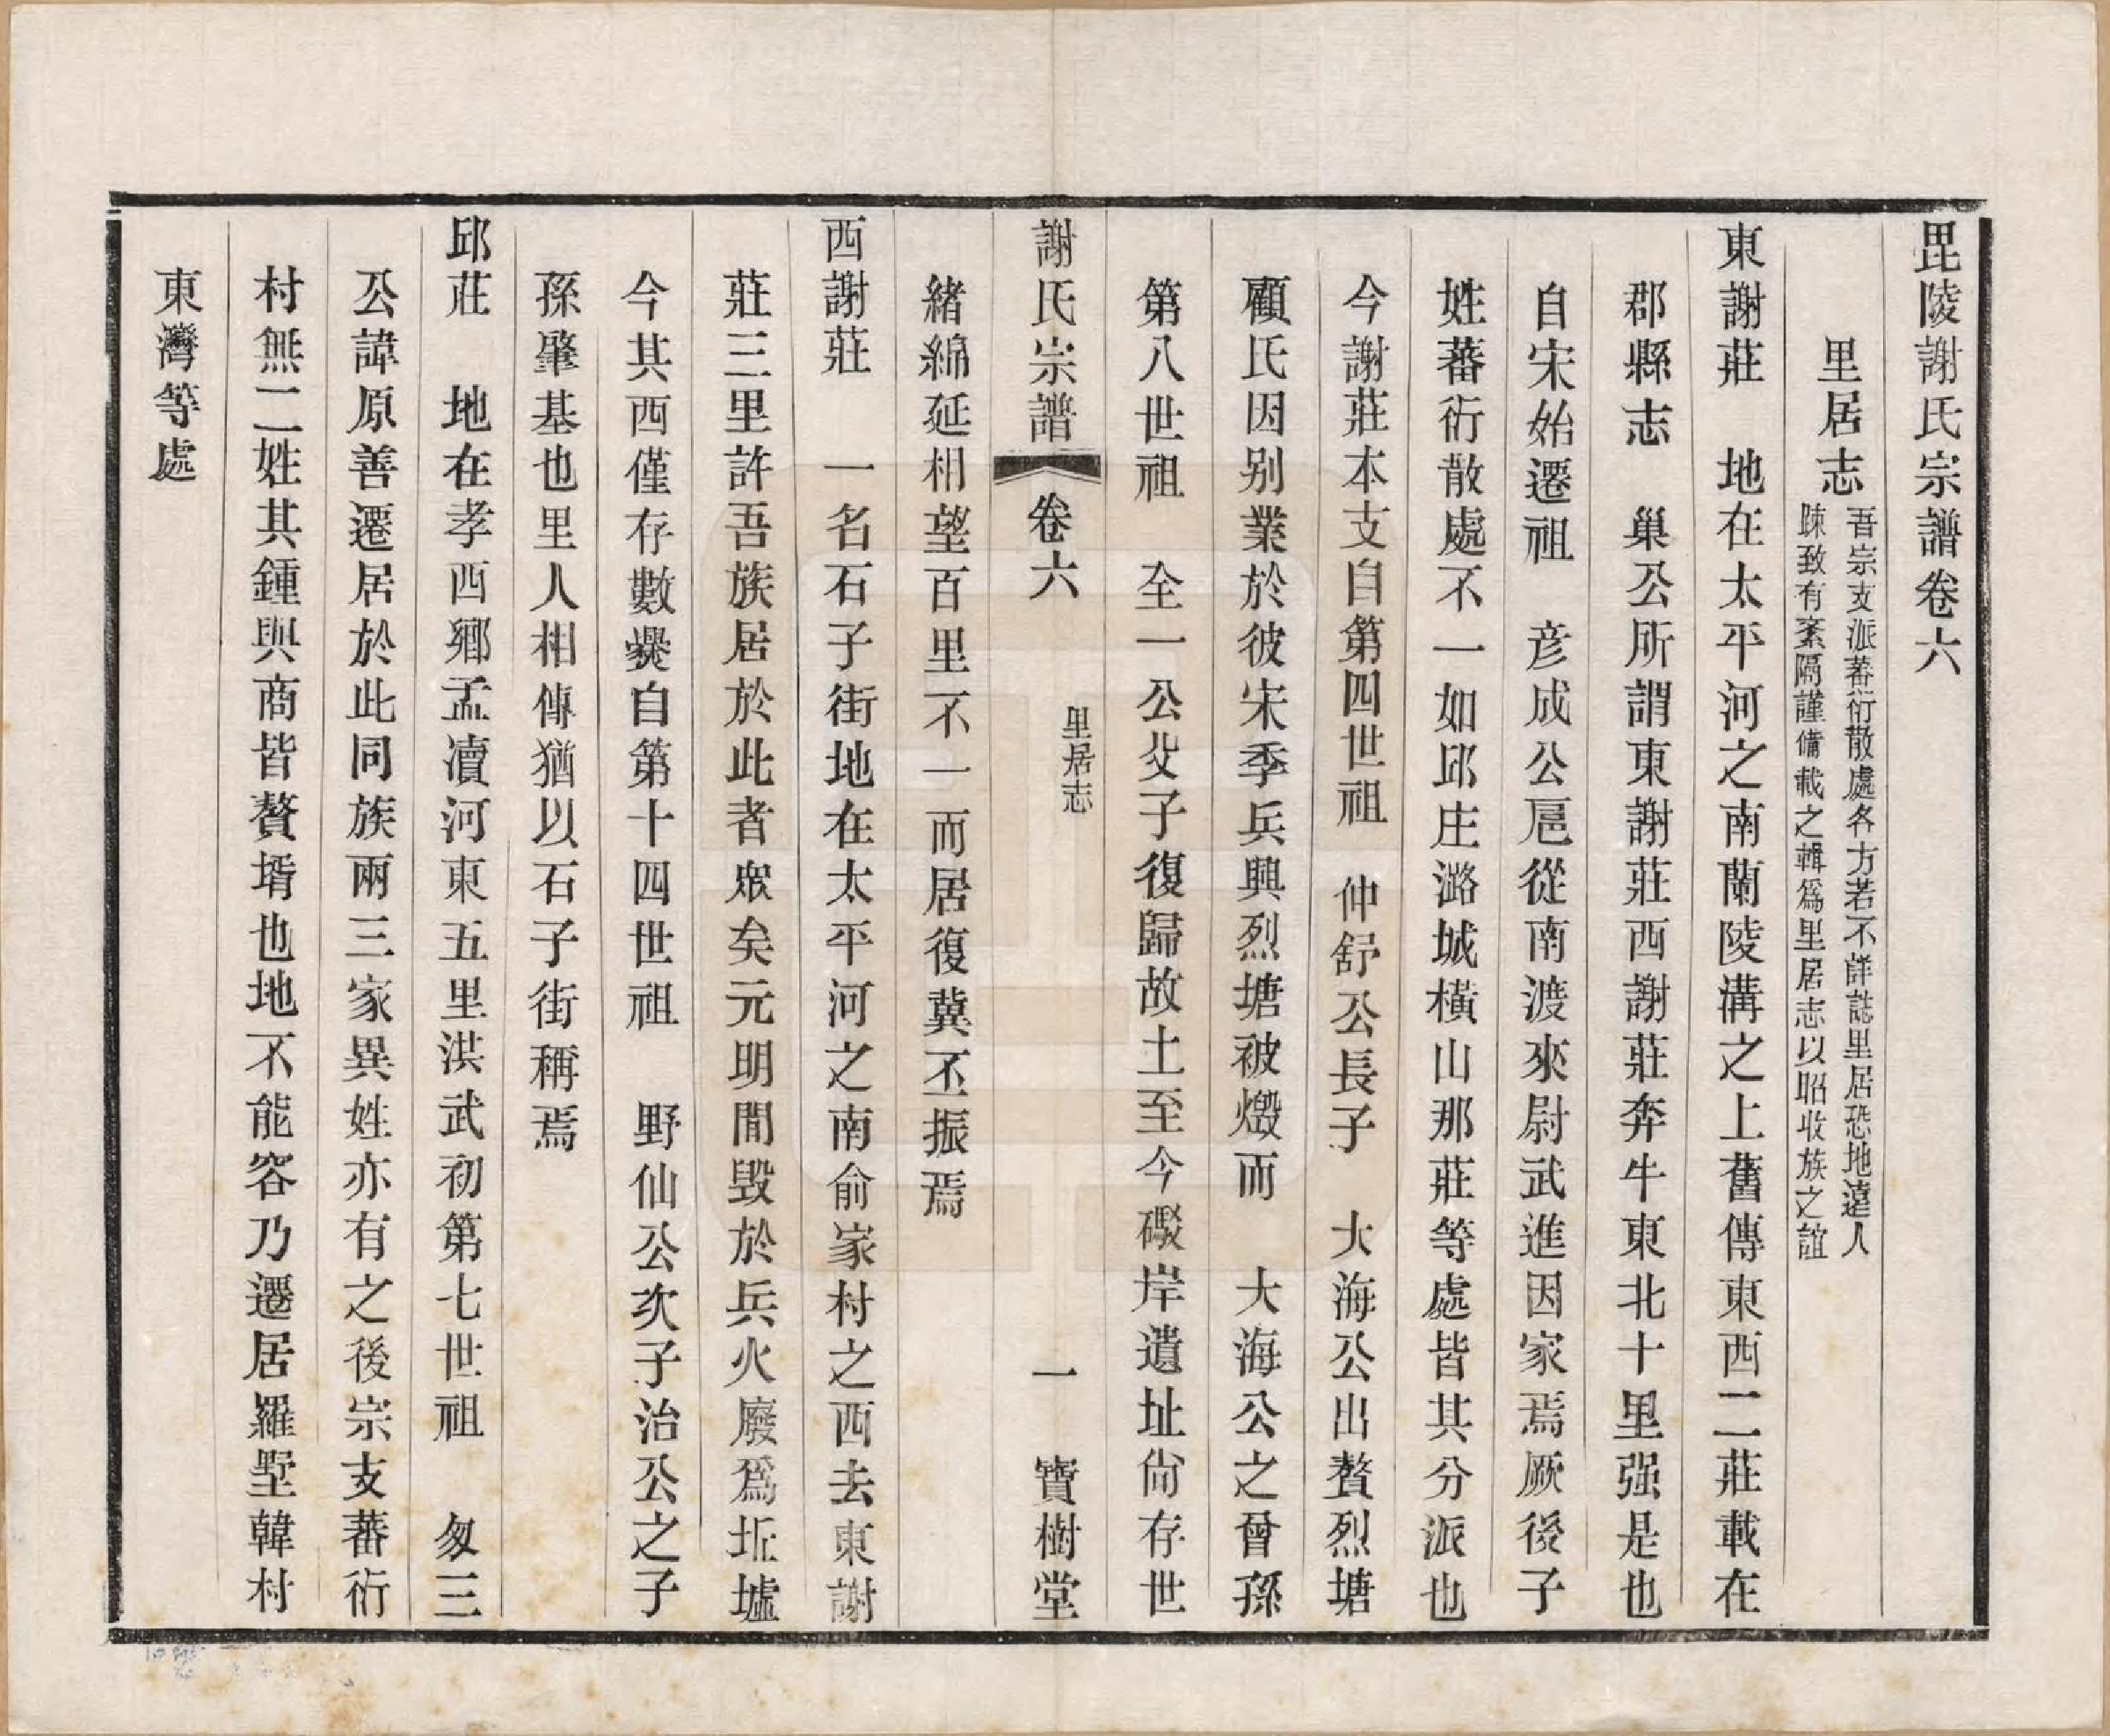 毘陵謝氏宗譜卷六
里居志
吾宗支派蕃衍散處各方若不詳誌里居恐地遠人
踈致有紊隔謹備載之輯爲里居志以昭收族之誼
東謝莊　地在太平河之南蘭陵溝之上舊傳東西二莊載在
郡縣志　巢公所謂東謝莊西謝莊奔牛東北十里强是也
自宋始遷祖　彦成公扈從南渡來尉武進因家焉厥後子
姓蕃衍散處不一如邱庄潞城橫山那莊等處皆其分派也
今謝莊本支自第四世祖　仲舒公長子　大海公出贅烈塘
顧氏因別業於彼宋季兵興烈塘被燬而　大海公之曾孫
第八世祖　全一公父子復歸故土至今礮岸遺址尙存世
謝氏宗譜　卷六　里居志　一　寶樹堂
緒綿延相望百里不一而居復冀丕振焉
西謝莊　一名石子街地在太平河之南俞家村之西去東謝
莊三里許吾族居於此者衆矣元明間毀於兵火廢爲坵墟
今其西僅存數爨自第十四世祖　野仙公次子治公之子
孫肇基也里人相傳猶以石子街稱焉
邱莊　地在孝西鄕孟瀆河東五里洪武初第七世祖　匆三
公諱原善遷居於此同族兩三家異姓亦有之後宗支蕃衍
村無二姓其鍾與商皆贅壻也地不能容乃遷居羅墅韓村
東灣等處